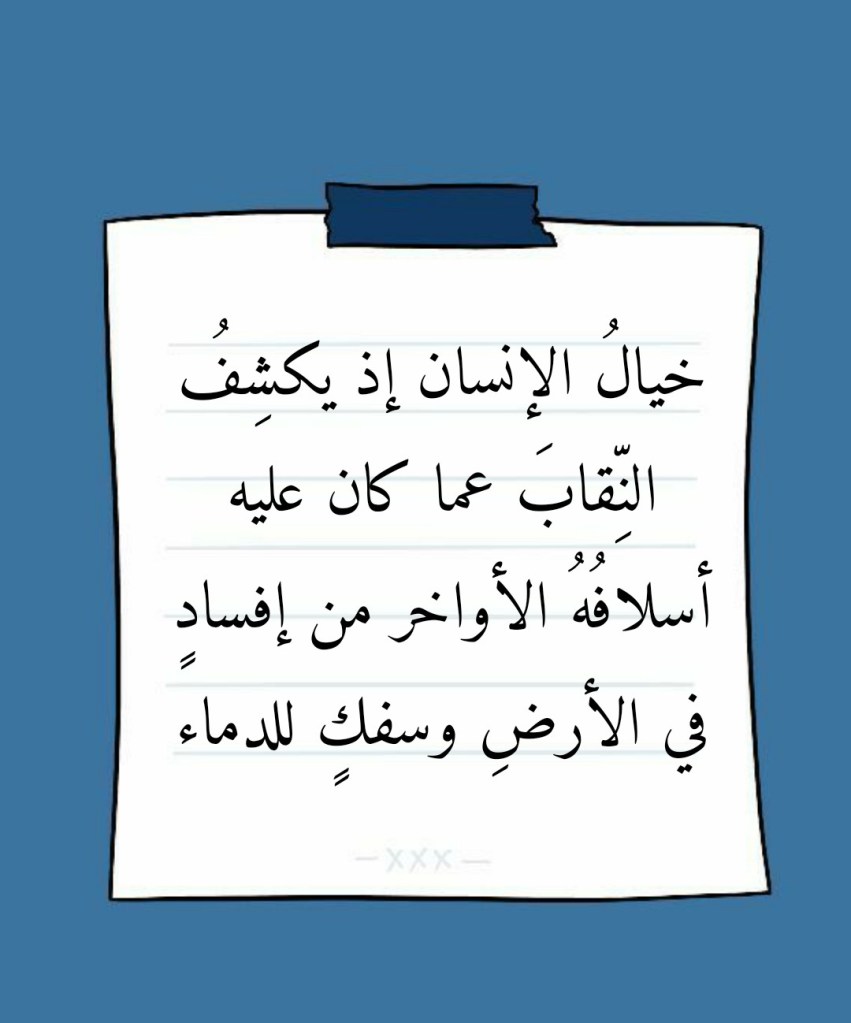 خيالُ الإنسان إذ يكشِفُ
النِّقابَ عما كان عليه
أسلافُهُ الأواخر من إفسادٍ
في الأرضِ وسفكٍ للدماء
— xxx —